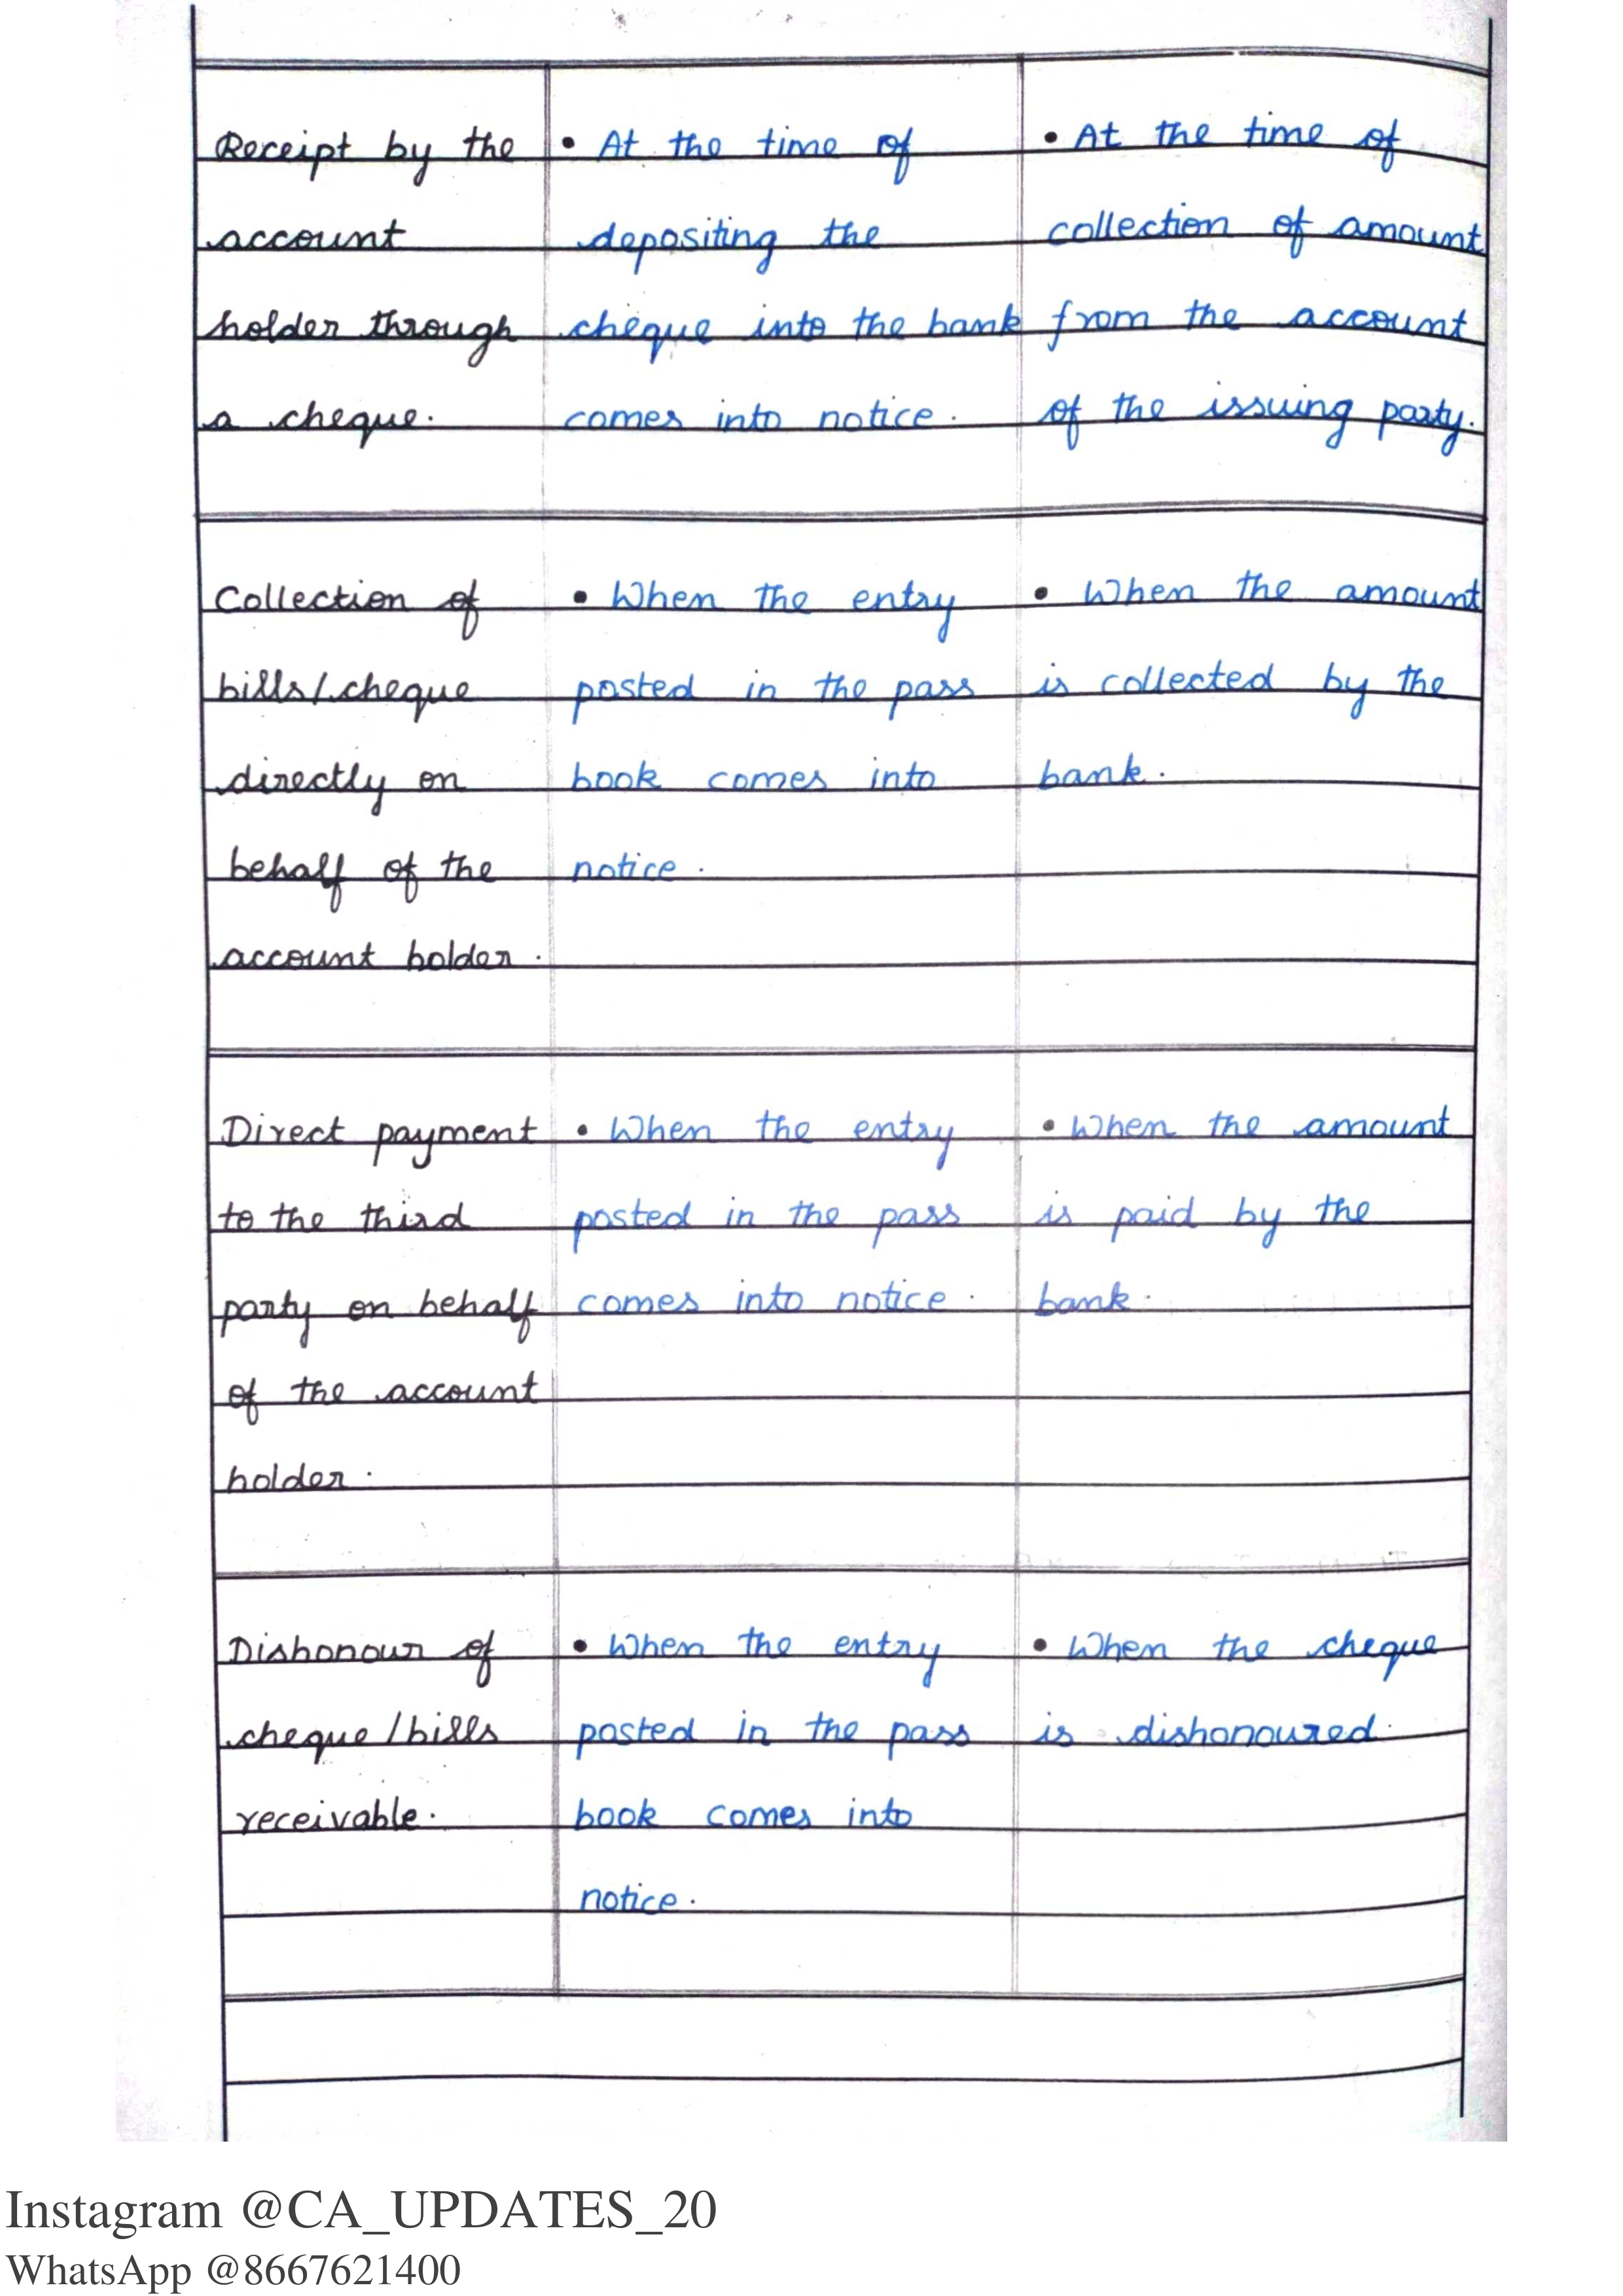 Receipt by the
account
holder through
a cheque.
• At the time of
depositing the
cheque into the bank
comes into notice.
• At the time of
collection of amount
from the account
of the issuing party.
Collection of
bills/cheque
directly on
behalf of the
account holder.
• When the entry
posted in the pass
book comes into
notice.
• When the amount
is collected by the
bank.
Direct payment
to the third
party on behalf
of the account
holder.
• When the entry
posted in the pass
comes into notice.
• When the amount
is paid by the
bank.
Dishonour of
cheque/bills
receivable.
• When the entry
posted in the pass
book comes into
notice.
• When the cheque
is dishonoured.
Instagram @CA_UPDATES_20
WhatsApp @8667621400